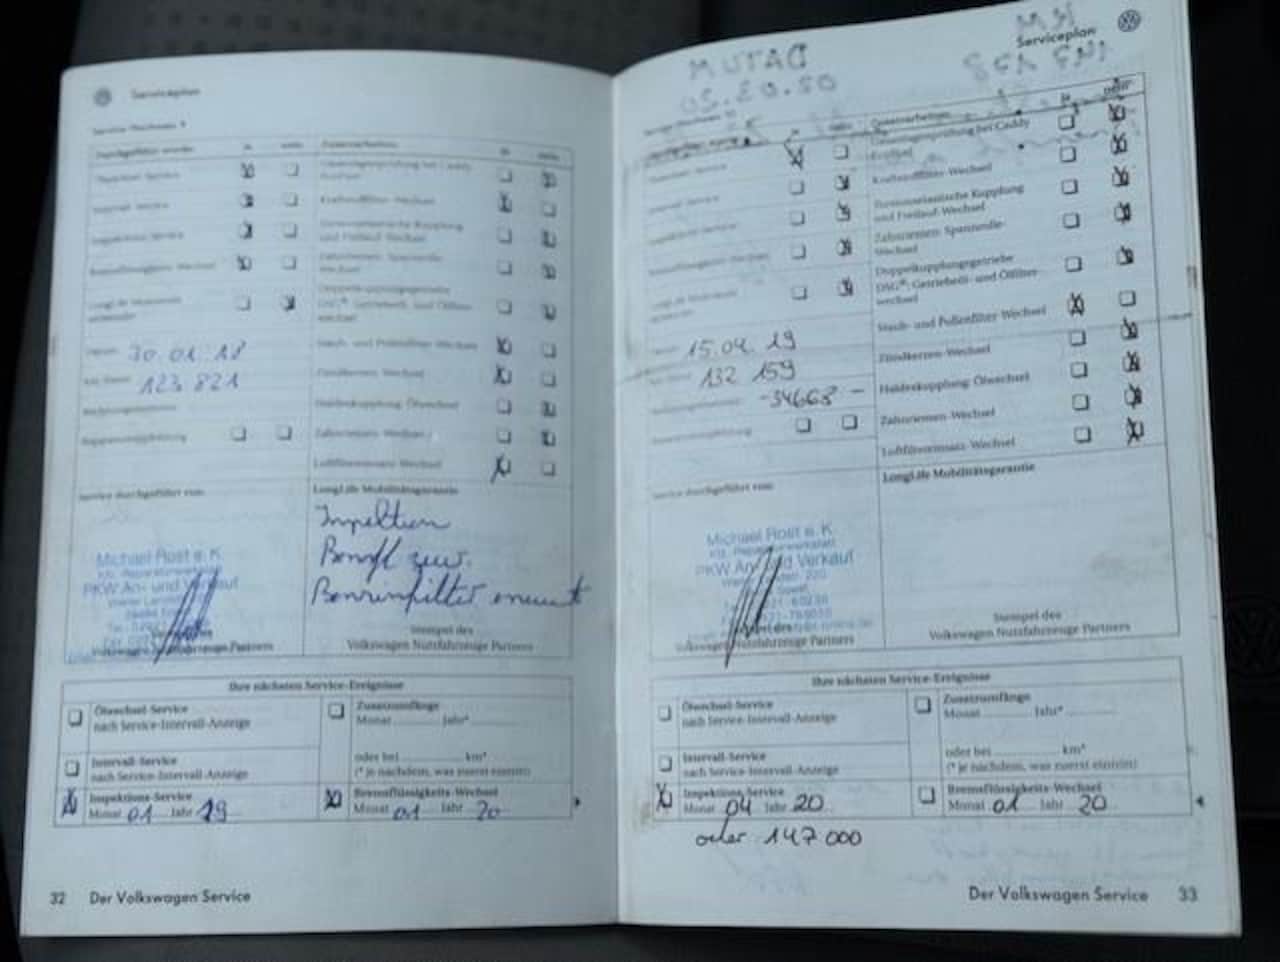 Serviceplan
Durchgeführt wurde: ja nein Zusatzarbeiten: ja nein
Ölwechsel-Service
Intervall-Service Kraftstofffilter-Wechsel
Inspektions-Service
und Freilauf-Wechsel
Bremsflüssigkeits-Wechsel Zahnriemen- Spannrolle-
Wechsel
LongLife Motorenöl
verwendet
Doppelkupplungsgetriebe
DSG®: Getriebeöl- und Ölfilter-
wechsel
Datum 30 01 18 Staub- und Pollenfilter-Wechsel
km-Stand 123 821 Zündkerzen-Wechsel
Haldexkupplung: Ölwechsel
Zahnriemen-Wechsel
Luftfiltereinsatz-Wechsel
Service durchgeführt von: LongLife Mobilitätsgarantie
Inspektion
Benzinfilter erneuert
Michael Rost e. K
Kfz.-Reparaturwerkstatt
PKW An- und Verkauf
Stempel des
Volkswagen Nutzfahrzeuge Partners
Stempel des
Volkswagen Nutzfahrzeuge Partners
Ihre nächsten Service-Ereignisse
Ölwechsel-Service
nach Service-Intervall-Anzeige
Zusatzumfänge
Monat Jahr*
Intervall-Service
nach Service-Intervall-Anzeige
oder bei km*
(* je nachdem, was zuerst eintritt)
Inspektions-Service
Monat 01 Jahr 19
Bremsflüssigkeits-Wechsel
Monat 01 Jahr 20
32 Der Volkswagen Service
Serviceplan
ja nein Zusatzarbeiten: ja nein
Ölwechsel-Service
Kraftstofffilter-Wechsel
Intervall-Service
Torsionselastische Kupplung
und Freilauf-Wechsel
Inspektions-Service
Zahnriemen- Spannrolle-
Wechsel
Bremsflüssigkeits-Wechsel
Doppelkupplungsgetriebe
DSG®: Getriebeöl- und Ölfilter-
wechsel
LongLife Motorenöl
verwendet
Staub- und Pollenfilter-Wechsel
Datum 15.04. 19
Zündkerzen-Wechsel
km-Stand 132 159
Haldexkupplung: Ölwechsel
-34668 -
Zahnriemen-Wechsel
Luftfiltereinsatz-Wechsel
Service durchgeführt von: LongLife Mobilitätsgarantie
Michael Rost e. K
Kfz.-Reparaturwerkstatt
PKW An- und Verkauf
Stempel des
Volkswagen Nutzfahrzeuge Partners
Stempel des
Volkswagen Nutzfahrzeuge Partners
Ihre nächsten Service-Ereignisse
Ölwechsel-Service
nach Service-Intervall-Anzeige
Zusatzumfänge
Monat Jahr*
Intervall-Service
nach Service-Intervall-Anzeige
oder bei km*
(* je nachdem, was zuerst eintritt)
Inspektions-Service
Monat 04 Jahr 20
Bremsflüssigkeits-Wechsel
Monat 01 Jahr 20
oder 147 000
Der Volkswagen Service 33